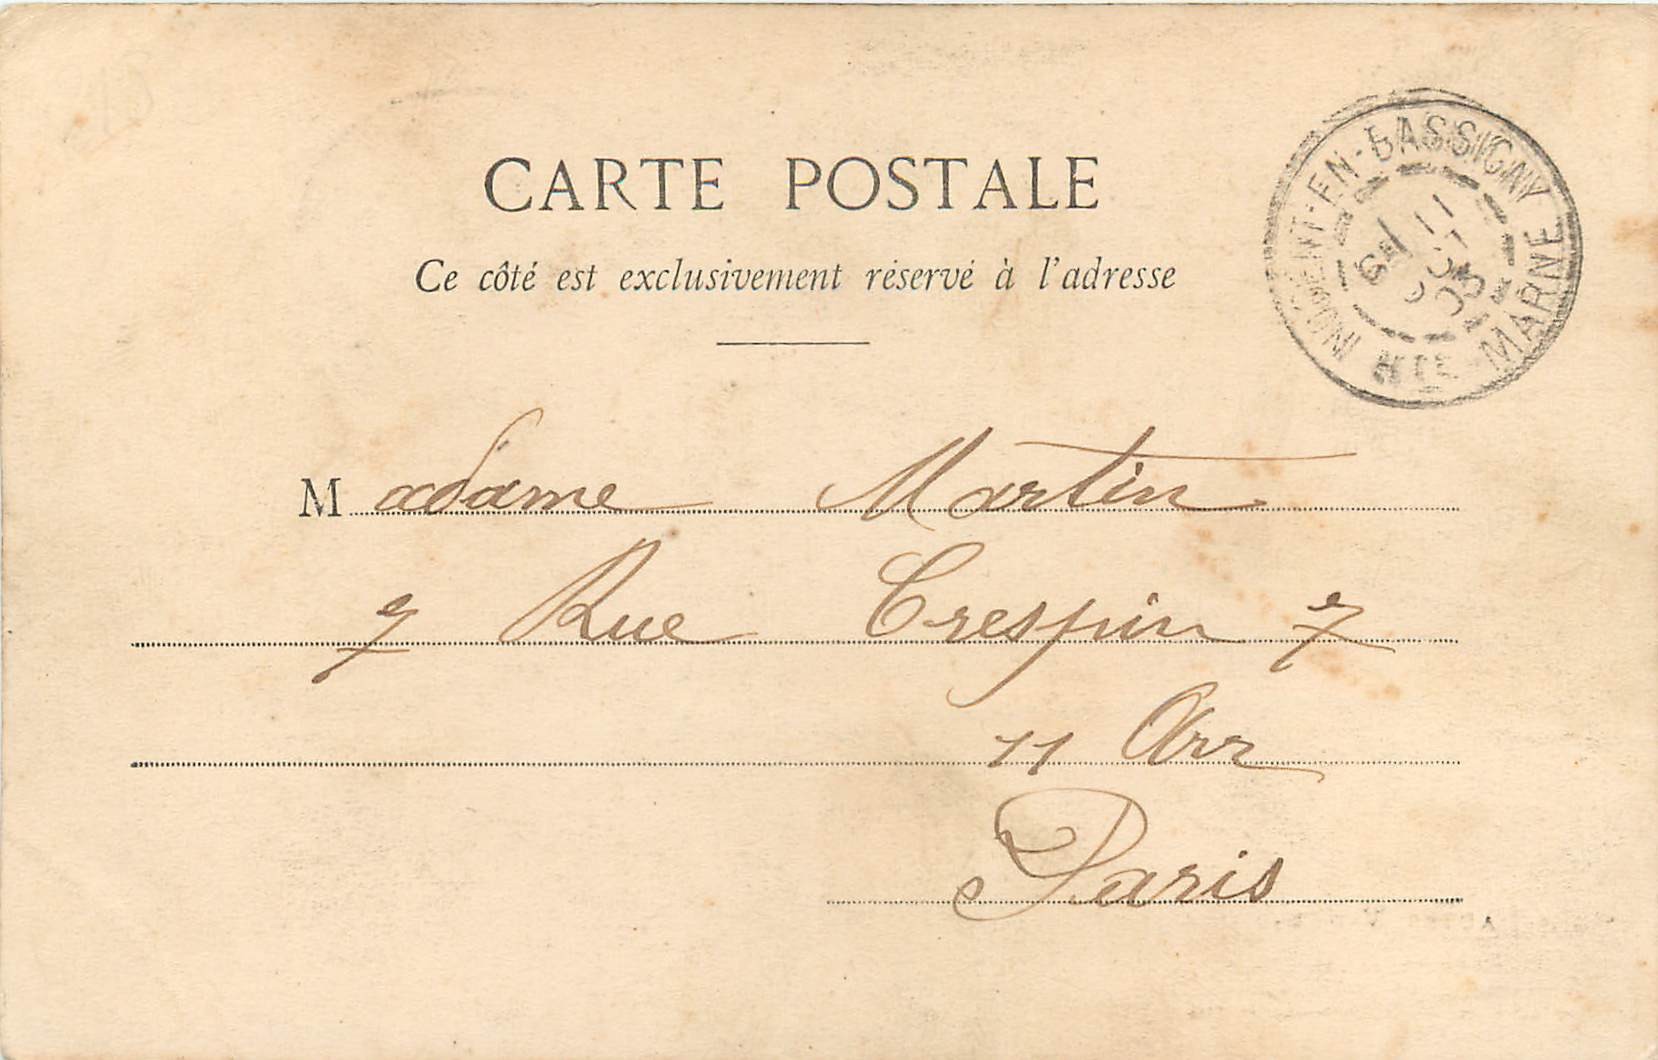 CARTE POSTALE
Ce côté est exclusivement réservé à l'adresse
NOGENT-EN-BASSIGNY
Hte MARNE
Madame Martin
7 Rue Crespin 7
11 Arr
Paris